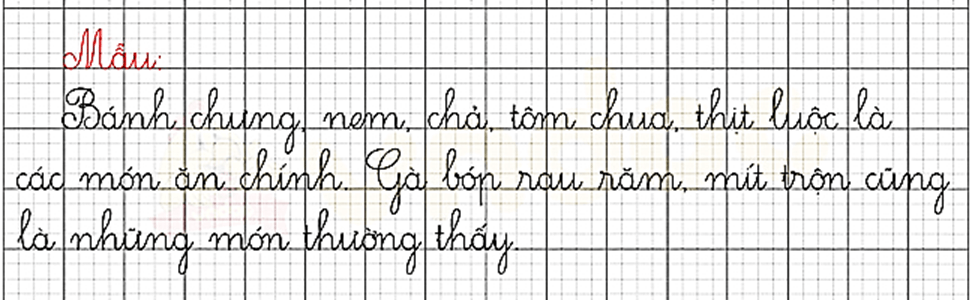 Mẫu:
Bánh chưng, nem, chả, tôm chua, thịt luộc là
các món ăn chính. Gà bóp rau răm, mít trộn cũng
là những món thường thấy.